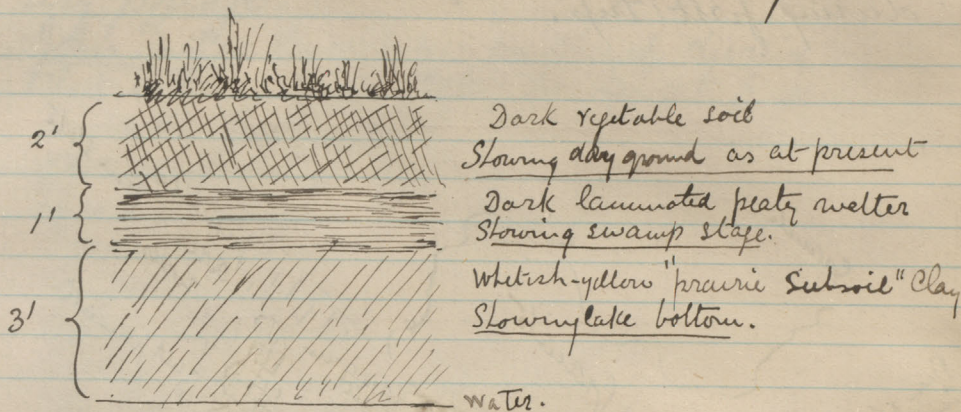 2' Dark vegetable soil
Showing dry ground as at present
1' Dark laminated peaty matter
Showing swamp stage.
3' Whitish-yellow "prairie Subsoil" Clay
Showing lake bottom.
water.